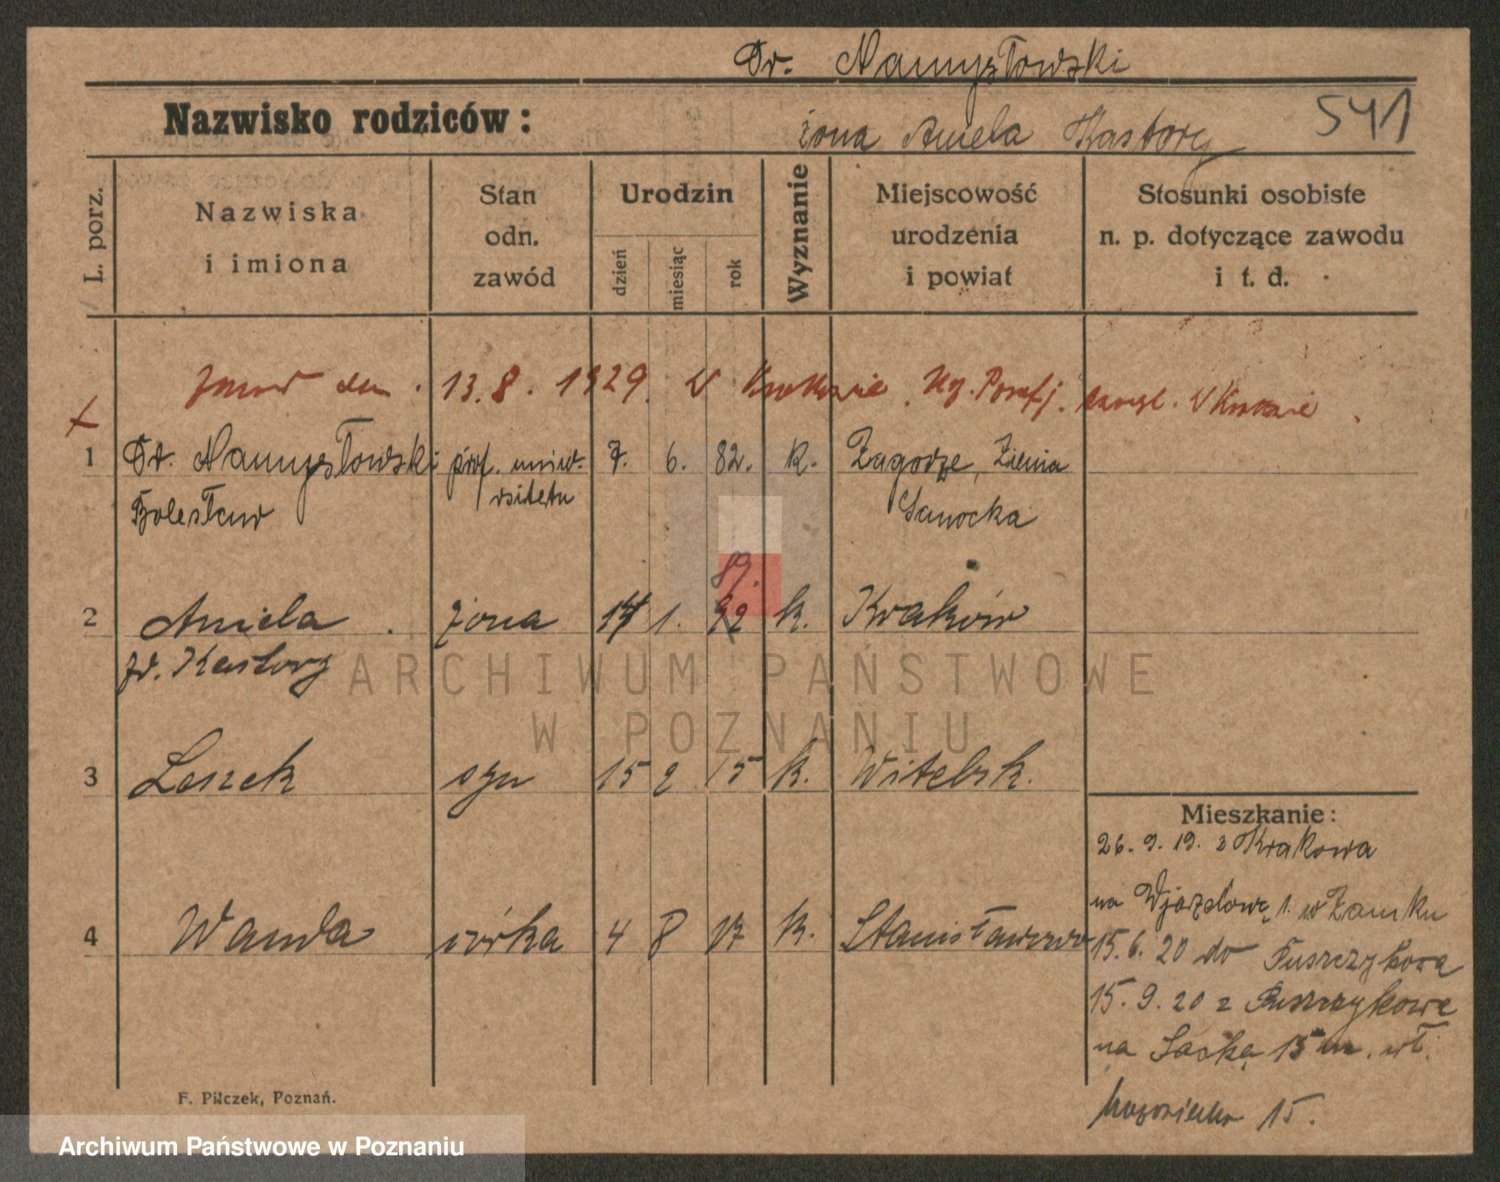 Dr. Namysłowski
Nazwisko rodziców:
żona Aniela Kastory
541
L. porz.
Nazwiska
i imiona
Stan
odn.
zawód
Urodzin
dzień
miesiąc
rok
Wyznanie
Miejscowość
urodzenia
i powiat
Stosunki osobiste
n. p. dotyczące zawodu
i t. d.
13.8.1929. w Krakowie
w Krakowie
1 Dr. Namysłowski prof. uniw- 7. 6. 82. k. Zagórze, Ziemia
Bolesław rsitetu Sanocka
89.
2 Aniela żona 14 1. 92 k. Kraków
zd. Kastory
ARCHIWUM PAŃSTWOWE
W POZNANIU
3 Leszek syn 15 2 15 k. Witebsk.
Mieszkanie:
26. 9. 19. z Krakowa
na Wjazdową 1. w Zamku
4 Wanda córka 4 8 17 k. Stanisławowo
15. 6. 20 do Puszczykowa
15. 9. 20 z Puszczykowa
na Saską 15 m. wł.
15.
F. Pilczek, Poznań.
Archiwum Państwowe w Poznaniu